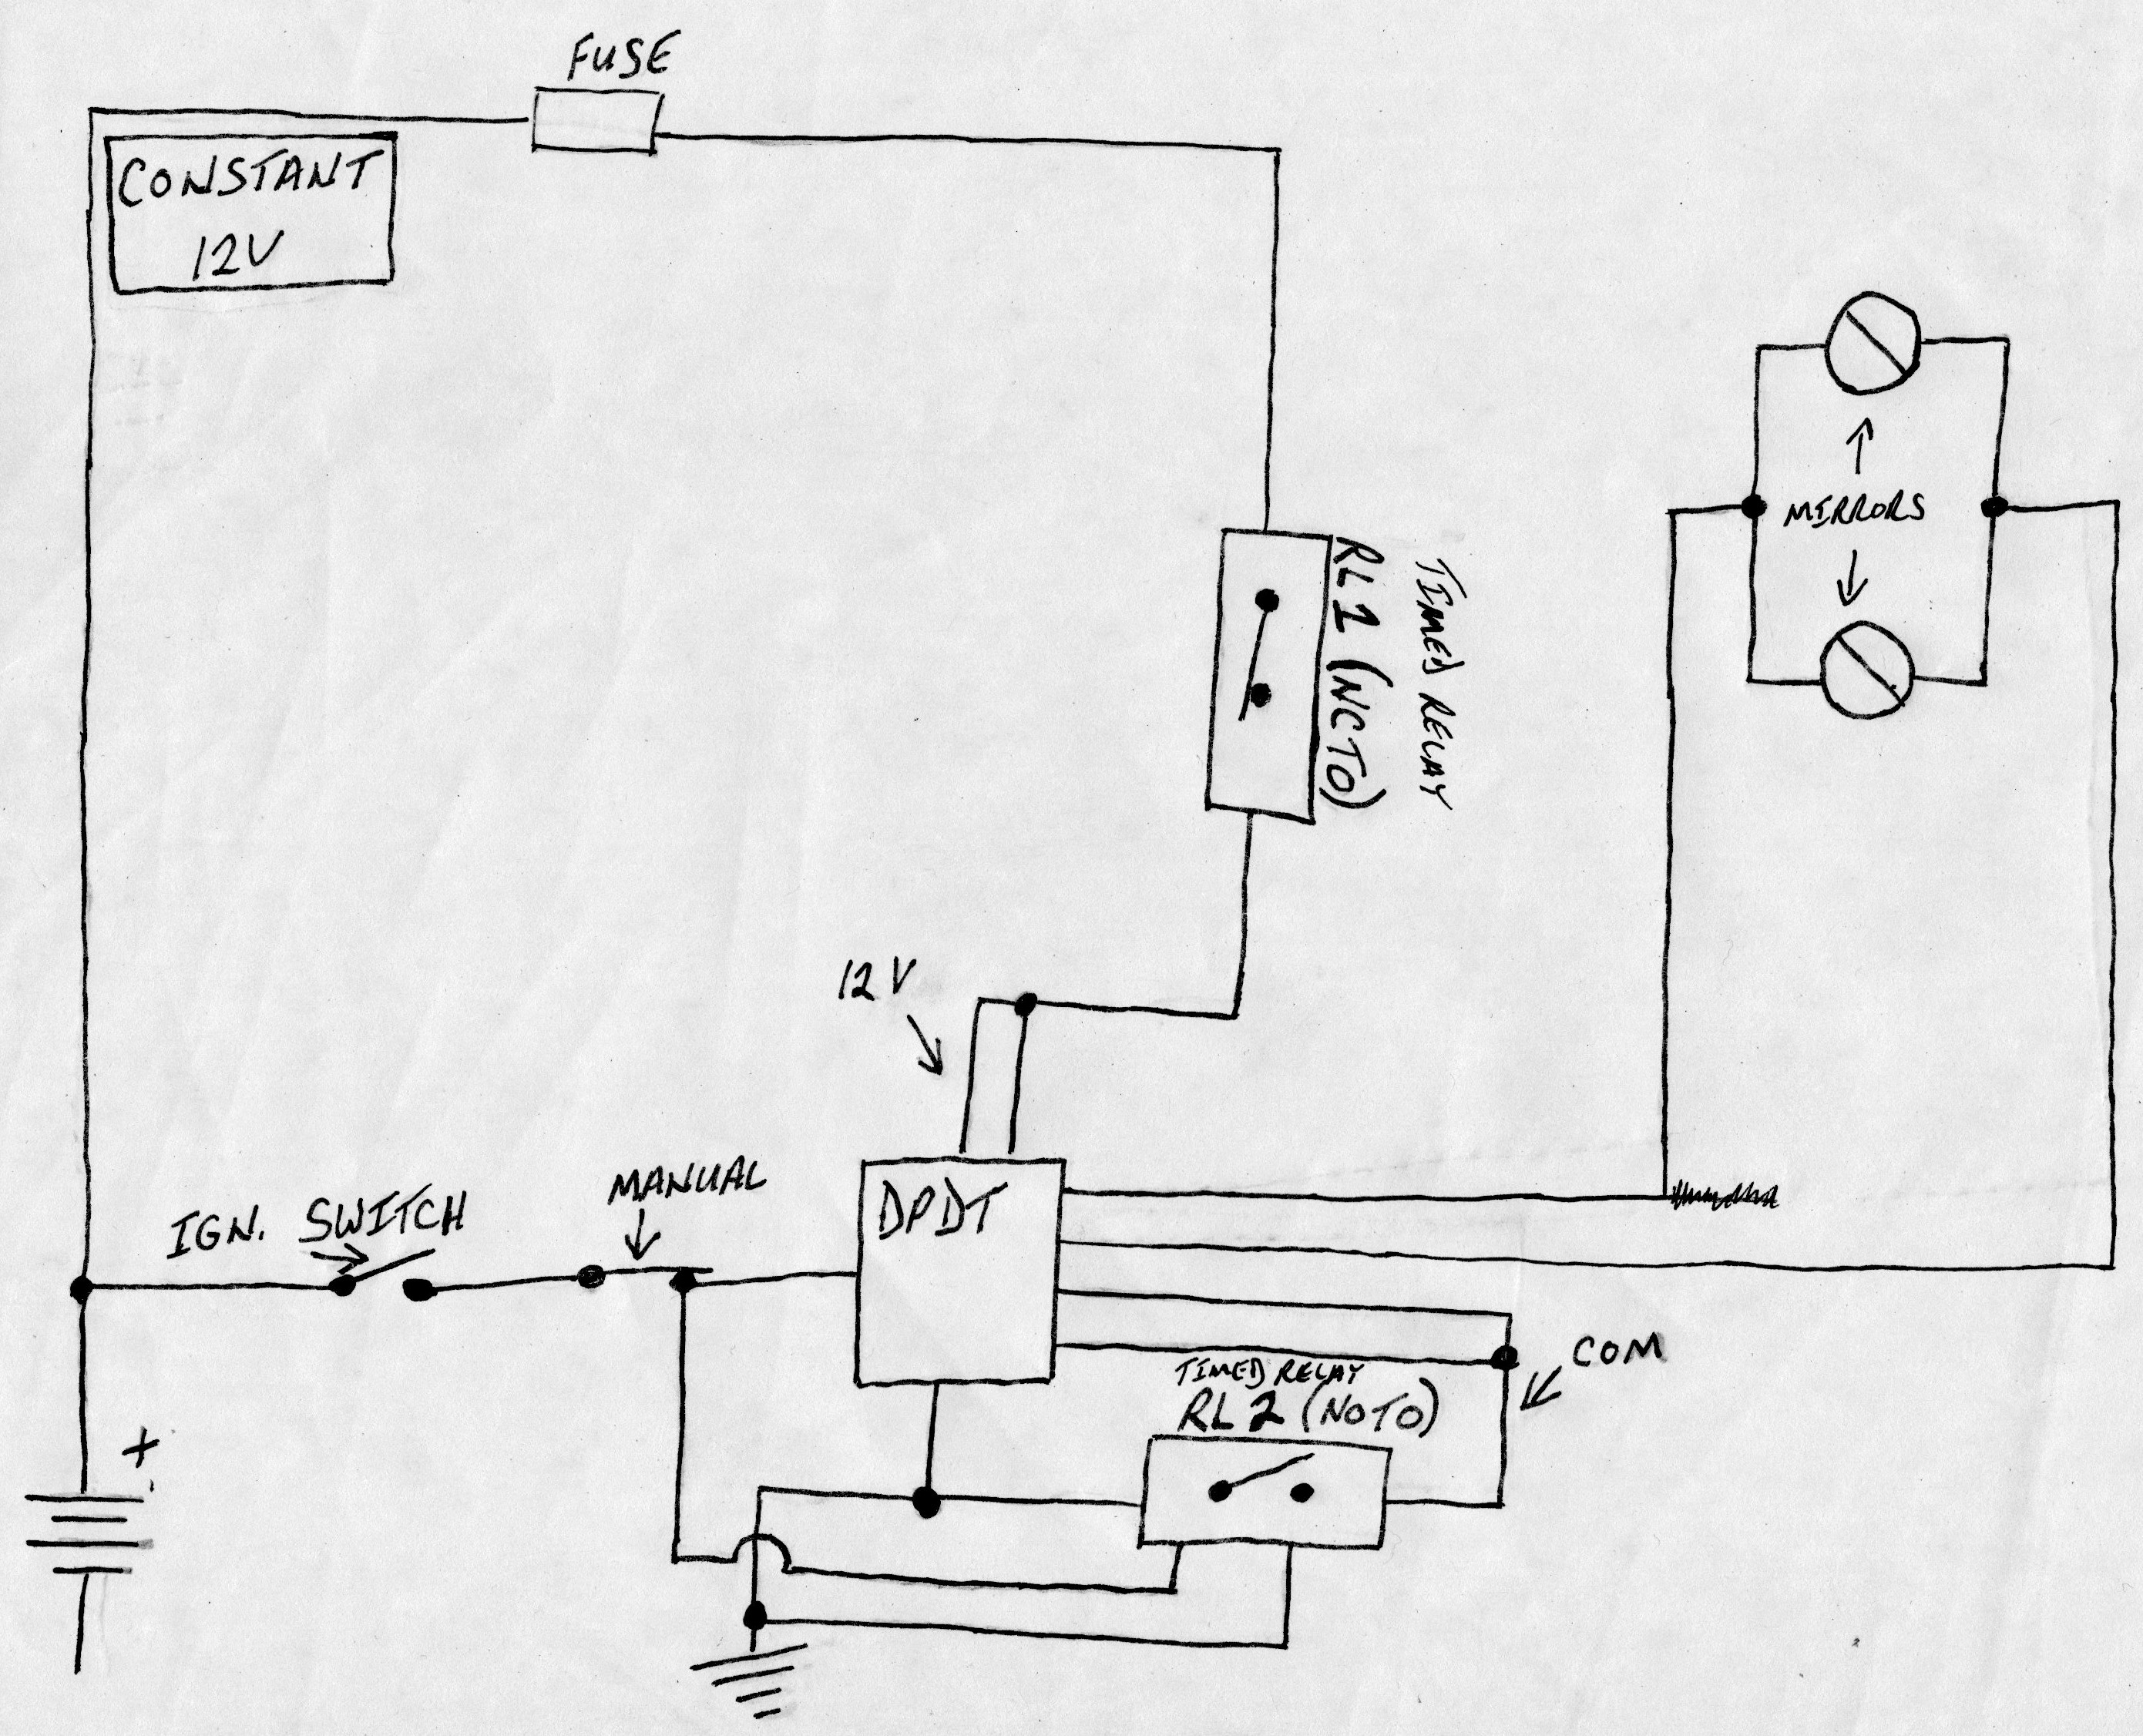 FUSE
CONSTANT
12V
TIMED RELAY
RL1 (NCTO)
MIRRORS
12V
MANUAL
IGN. SWITCH
DPDT
COM
TIMED RELAY
RL2 (NOTO)
+